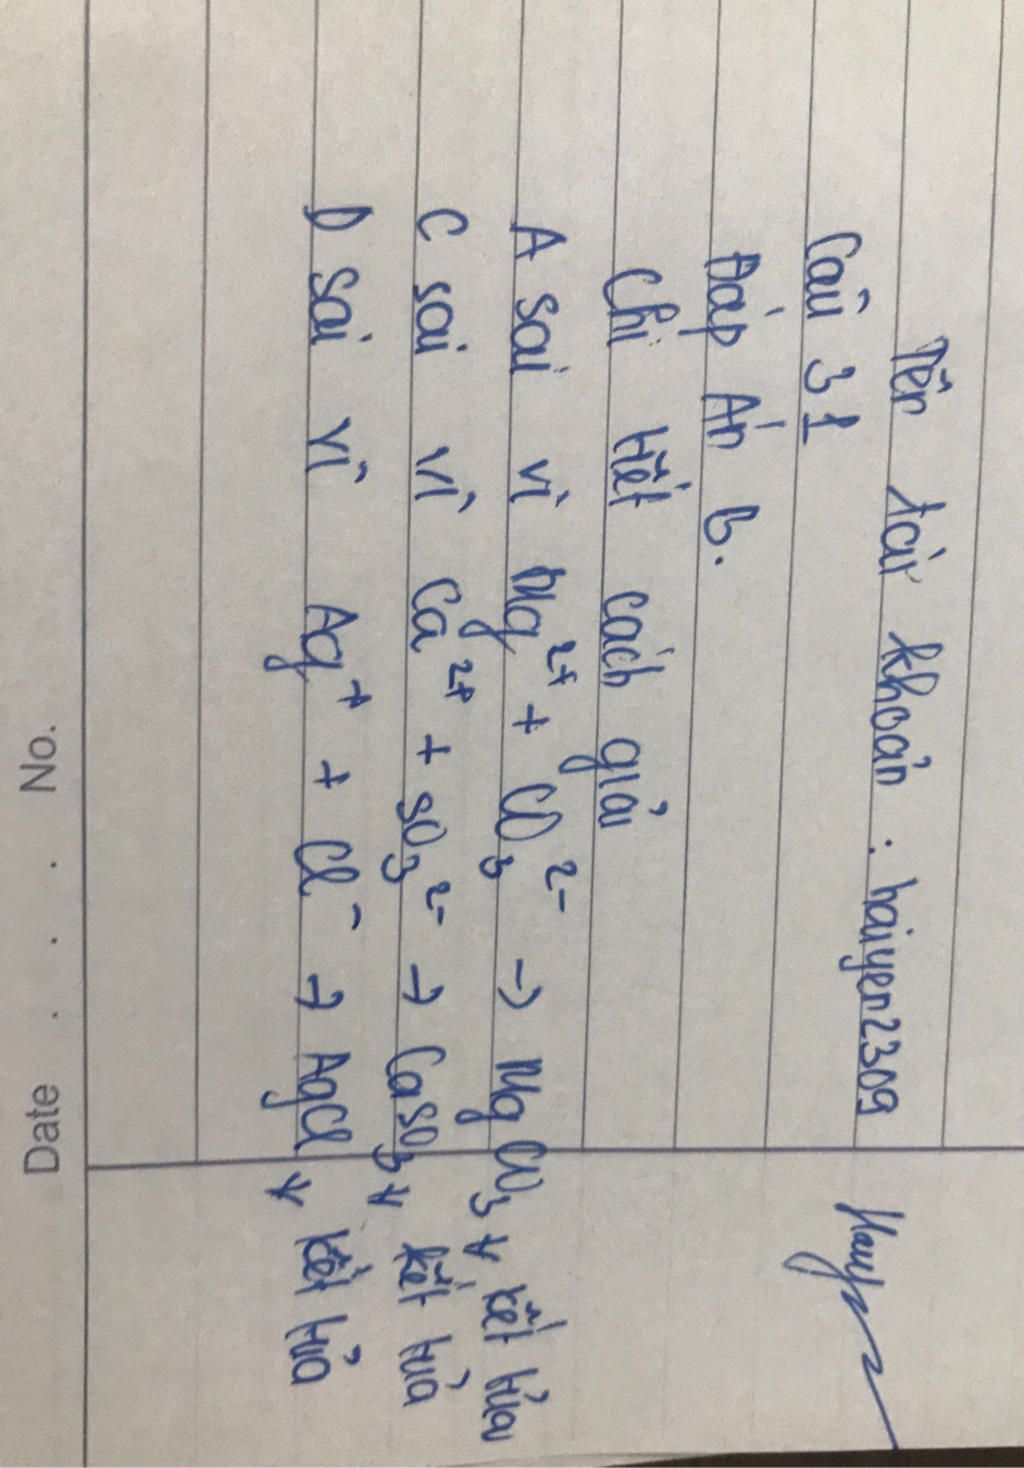 Tên tài khoản : haiyen2309
Câu 31
Đáp Án B.
Chi tiết cách giải
A sai vì Mg²⁺ + CO₃²⁻ → MgCO₃ ↓ kết tủa
C sai vì Ca²⁺ + SO₃²⁻ → CaSO₃ ↓ kết tủa
D sai vì Ag⁺ + Cl⁻ → AgCl ↓ kết tủa
No.
Date . . .